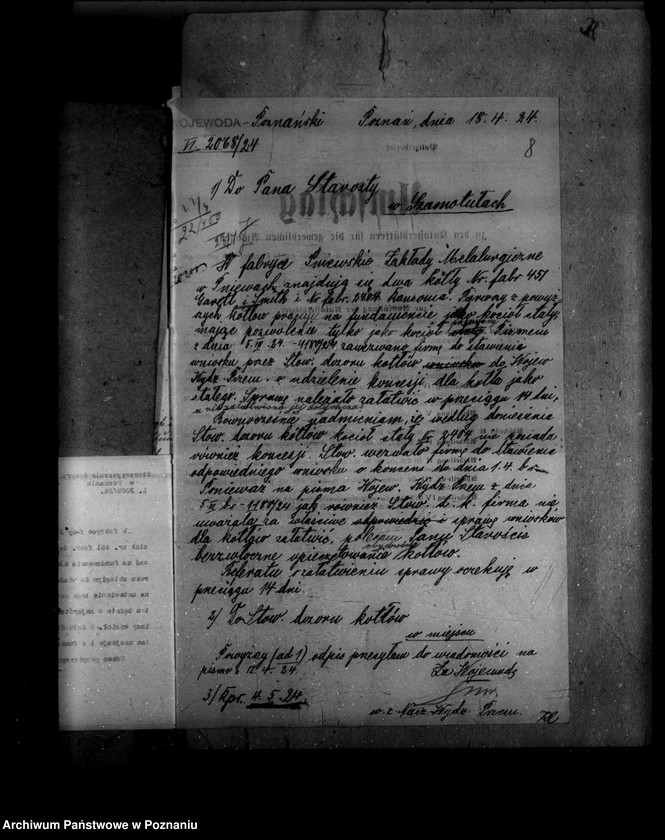 WOJEWODA - Poznański Poznań, dnia 18. 4. 24.
VI. 2068/24
8
1) Do Pana Starosty
w Szamotułach
W fabryce Pniewskie Zakłady Metalurgiczne
w Pniewach znajdują się dwa kotły Nr. fabr 451
Garett i Smith i Nr fabr. 2484 Ransonia. Pierwszy z powyż-
szych kotłów pracuje na fundamencie jako kocioł stały,
mając pozwolenie tylko jako kocioł Pismem
z dnia 5 III 24. - 4180/24 zawezwano firmę do stawienia
wniosku przez Stow. dozoru kotłów do Wojew
Wydz. Przem. o udzielenie koncesji dla kotła jako
stałego. Sprawę należało załatwić w przeciągu 14 dni,
a niezałatwiono jej dotychczas.
Równocześnie nadmieniam, że według doniesienia
Stow. dozoru kotłów kocioł stały Nr 2484 nie posiada
również koncesji. Stow. wezwało firmę do stawienia
odpowiedniego wniosku o koncens do dnia 1. 4. b r.
Ponieważ na pisma Wojew. Wydz Przem z dnia
5 III br. - 4180/24 jak również Stow. d. k. firma nie
uważała za właściwe sprawę wniosków
dla kotłów załatwić, polecam Panu Staroście
bezzwłoczne opieczętowanie obydwóch kotłów.
Referatu o załatwieniu sprawy oczekuję w
przeciągu 14 dni.
2) Do Stow. dozoru kotłów
w miejscu
Powyższy (ad 1) odpis przesyłam do wiadomości na
pismo z 12. 4. 24. Za Wojewodę
3) Kpr. 4. 5. 24.
w. z. Nacz. Wydz. Przem.
Archiwum Państwowe w Poznaniu